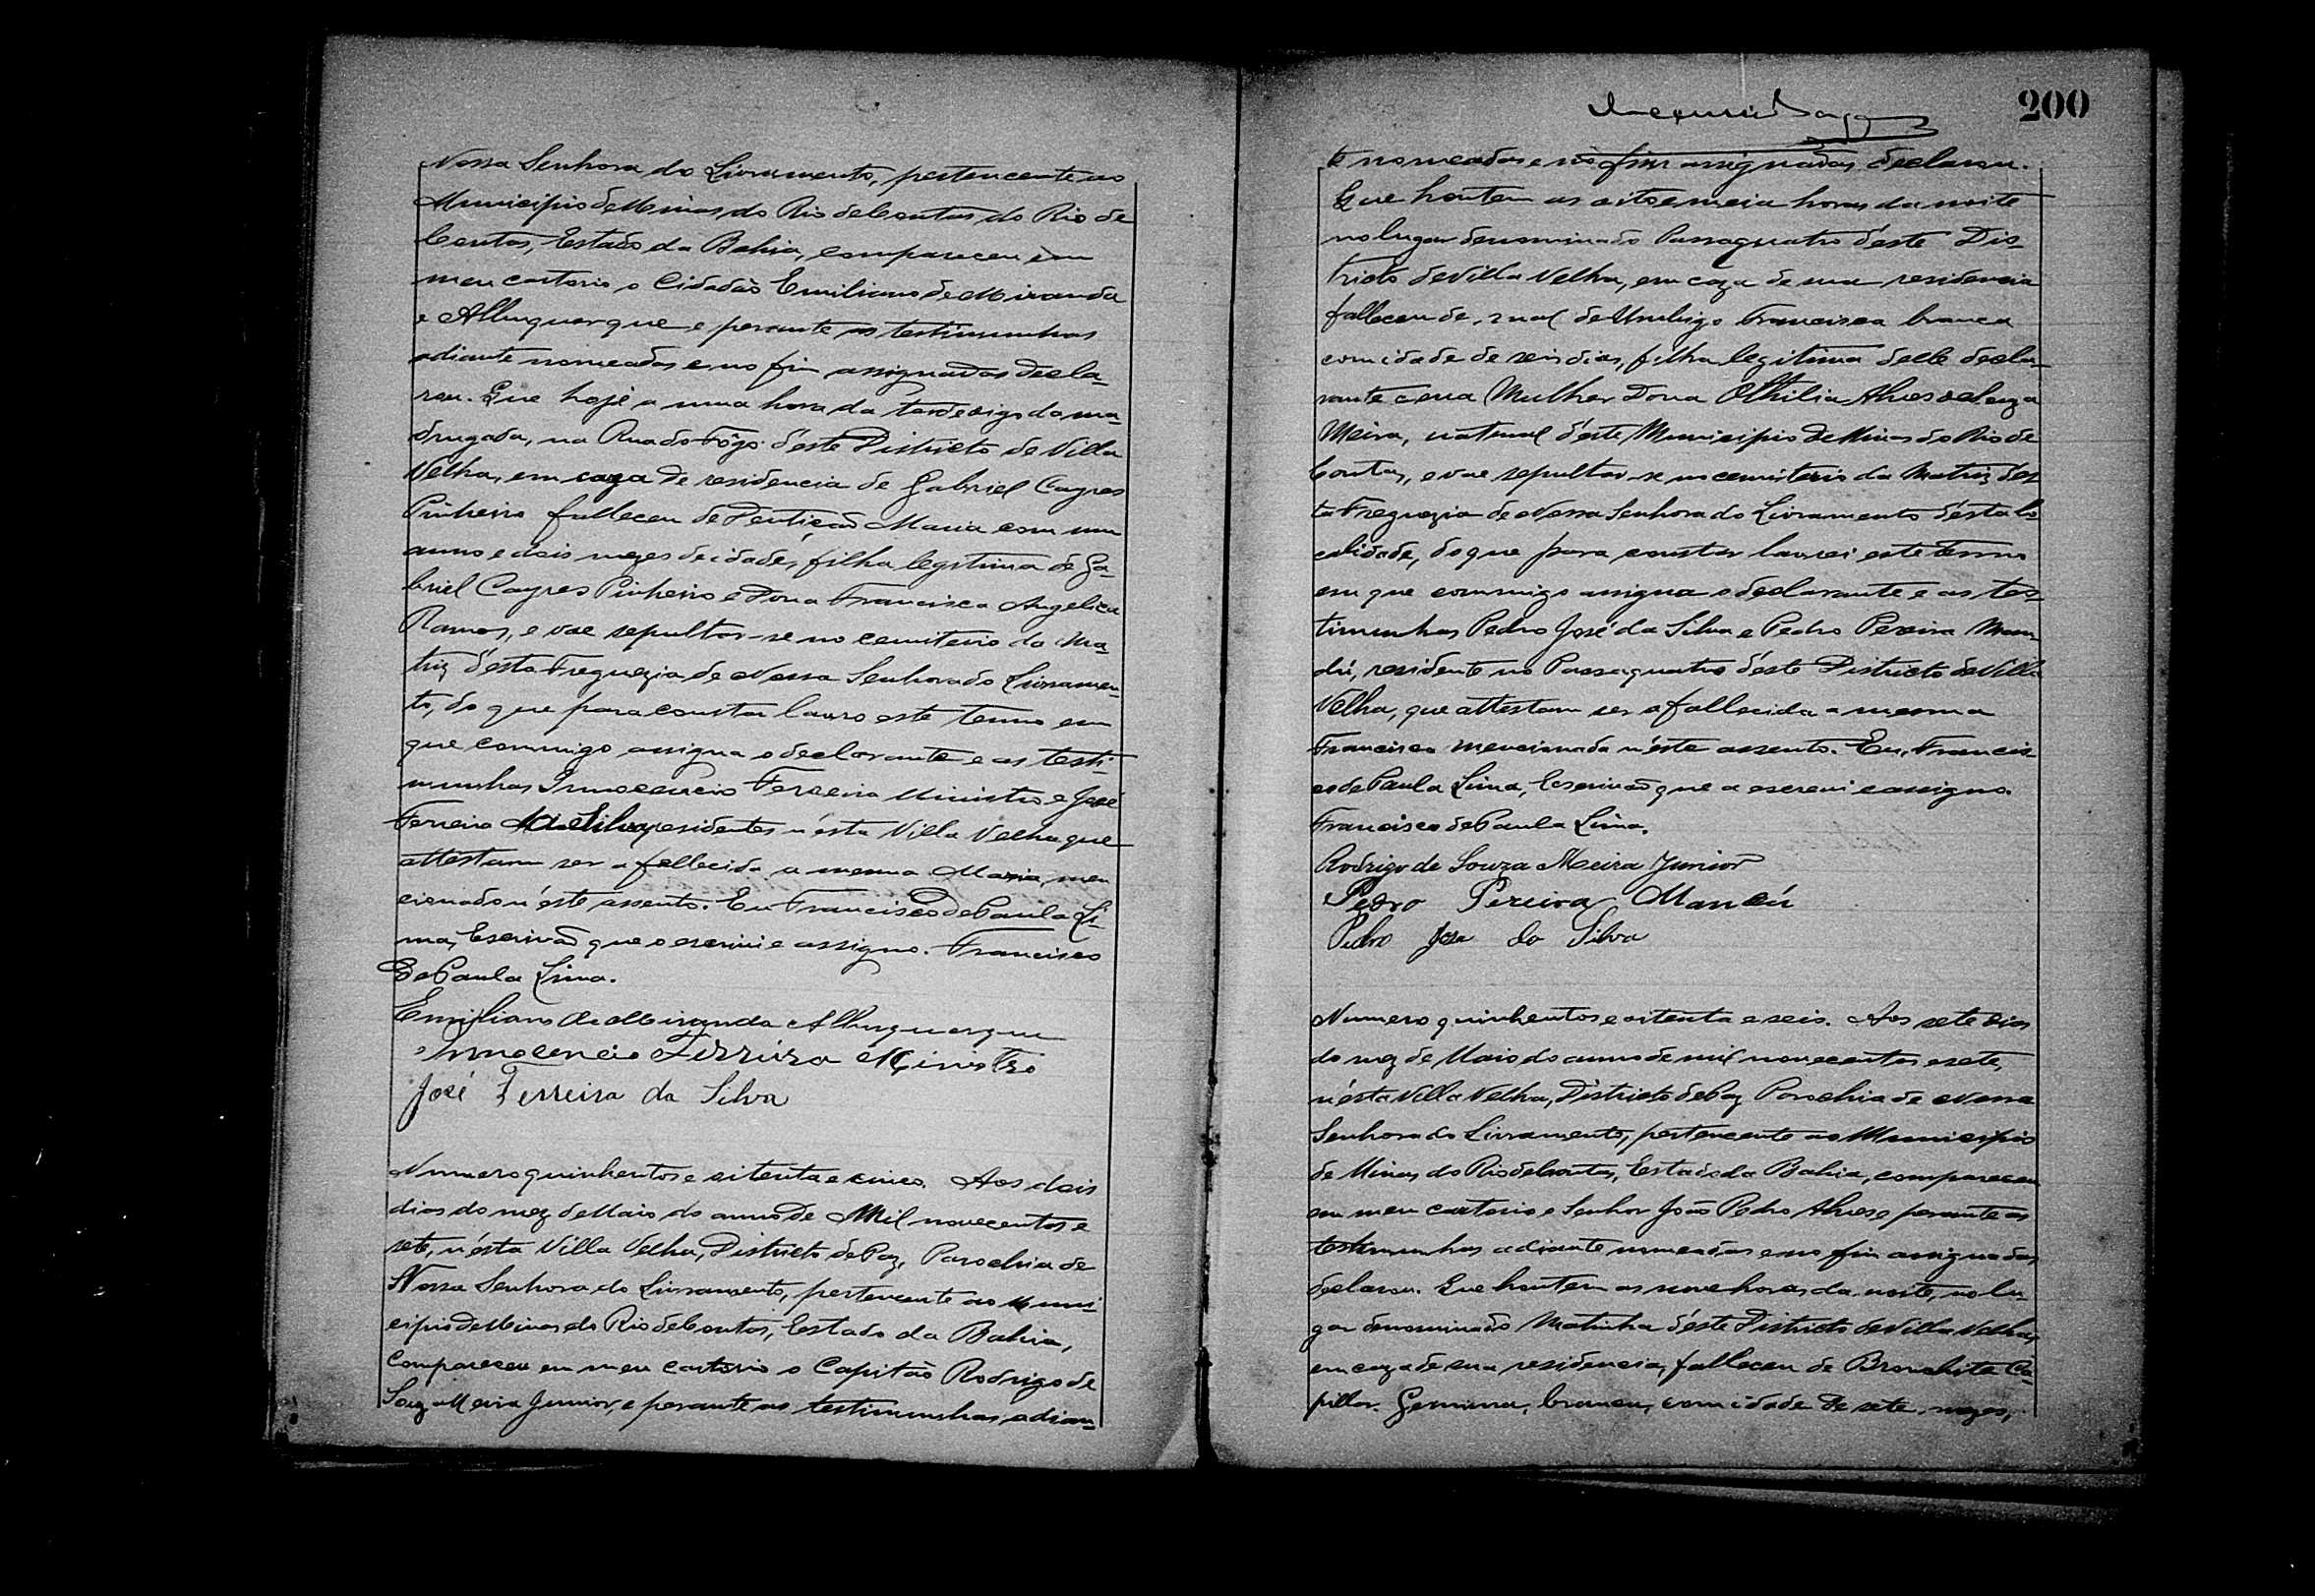 Nossa Senhora do Livramento, pertencente ao
Municipio de Minas do Rio de Contas, do Rio de
Contas, Estado da Bahia, compareceu em
meu cartorio o Cidadão Emiliano de Miranda
e Albuquerque e perante as testimunhas
adiante nomeadas e no fim assignadas decla-
rou. Que hoje a uma hora da tarde digo da ma-
drugada, na Rua do Fôgo d'este Districto de Villa
Velha, em caza de residencia de Gabriel Cayres
Pinheiro falleceu de Dentição Maria com um
anno e dois mezes de idade, filha legitima de Ga-
briel Cayres Pinheiro e Dona Francisca Angelica
Ramos, e vae sepultar-se no cemiterio da Ma-
triz d'esta Freguezia de Nossa Senhora do Livramen-
to, do que para constar lavro este termo em
que commigo assigna o declarante e as testi-
munhas Innocencio Ferreira Ministro e José
Ferreira da Silva, residentes n'esta Villa Velha que
attestam ser a fallecida a mesma Maria, men
cionada n'este assento. Eu Francisco de Paula Li-
ma, Escrivão que o escrevi e assigno. Francisco
de Paula Lima.
Emiliano de Miranda Albuquerque
Innocencio Ferreira Ministro
José Ferreira da Silva
Numero quinhentos e oitenta e cinco. Aos dois
dias do mez de Maio do anno de Mil novecentos e
sete, n'esta Villa Velha, Districto de Paz, Parochia de
Nossa Senhora do Livramento, pertencente ao Muni-
cipio de Minas do Rio de Contas, Estado da Bahia,
Compareceu em meu cartorio o Capitão Rodrigo de
Souza Meira Junior, e perante as testimunhas adian-
200
te nomeadas e no fim assignadas declarou.
Que hontem as oito e meia horas da noite
no lugar denominado Passaquatro d'este Dis-
tricto de Villa Velha, em caza de sua residencia
falleceu de mal de Umbigo Francisca branca
com idade de seis dias, filha legitima delle decla-
rante e sua Mulher Dona Othilia Alves de Souza
Meira, natural d'este Municipio de Minas do Rio de
Contas, e vae sepultar-se no cemiterio da Matriz des-
ta Freguezia de Nossa Senhora do Livramento d'esta lo-
calidade, do que para constar lavrei este termo
em que commigo assigna o declarante e as tes-
timunhas Pedro José da Silva e Pedro Pereira Man-
dú, residente no Passaquatro d'este Districto de Villa
Velha, que attestam ser a fallecida a mesma
Francisca mencionada n'este assento. Eu, Francis-
co de Paula Lima, Escrivão que a escrevi e assigno.
Francisco de Paula Lima.
Rodrigo de Souza Meira Junior
Pedro Pereira
Pedro José da Silva
Numero quinhentos e oitenta e seis. Aos sete dias
do mez de Maio do anno de mil novecentos e sete,
n'esta Villa Velha, Districto de Paz Parochia de Nossa
Senhora do Livramento, pertencente ao Municipio
de Minas do Rio de Contas, Estado da Bahia, compareceu
em meu cartorio o Senhor João Pedro Alves e perante as
testimunhas adiante nomeadas e no fim assignadas,
declarou. Que hontem as nove horas da noite, no lu-
gar denominado Matinha d'este Districto de Villa Velha,
em caza de sua residencia, falleceu de Bronchite Ca-
pillar. Gemima, branca, com idade de sete mezes,